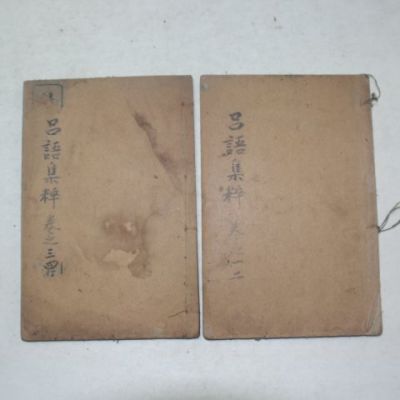 呂語集粹 卷之三四
呂語集粹 卷之一二